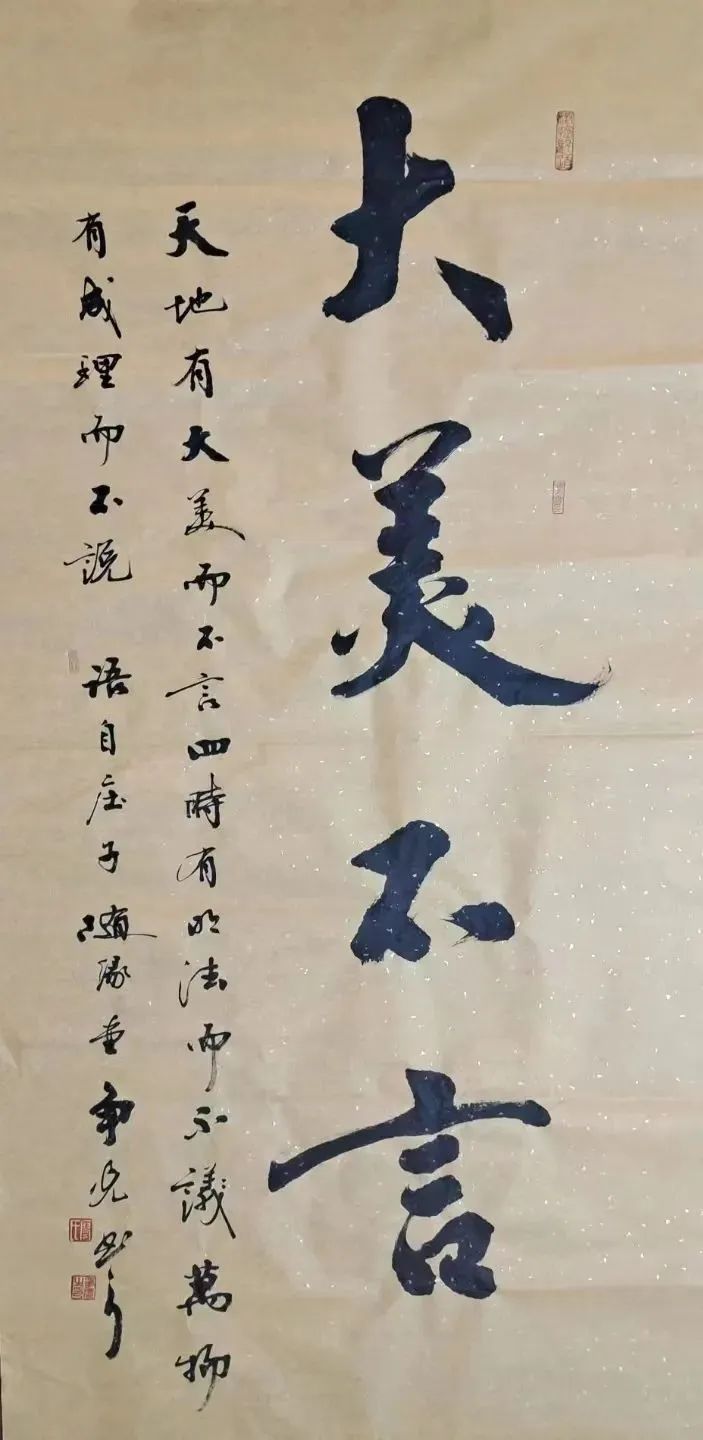 大美不言
天地有大美而不言四時有明法而不議萬物
有成理而不説 语自庄子随缘堂